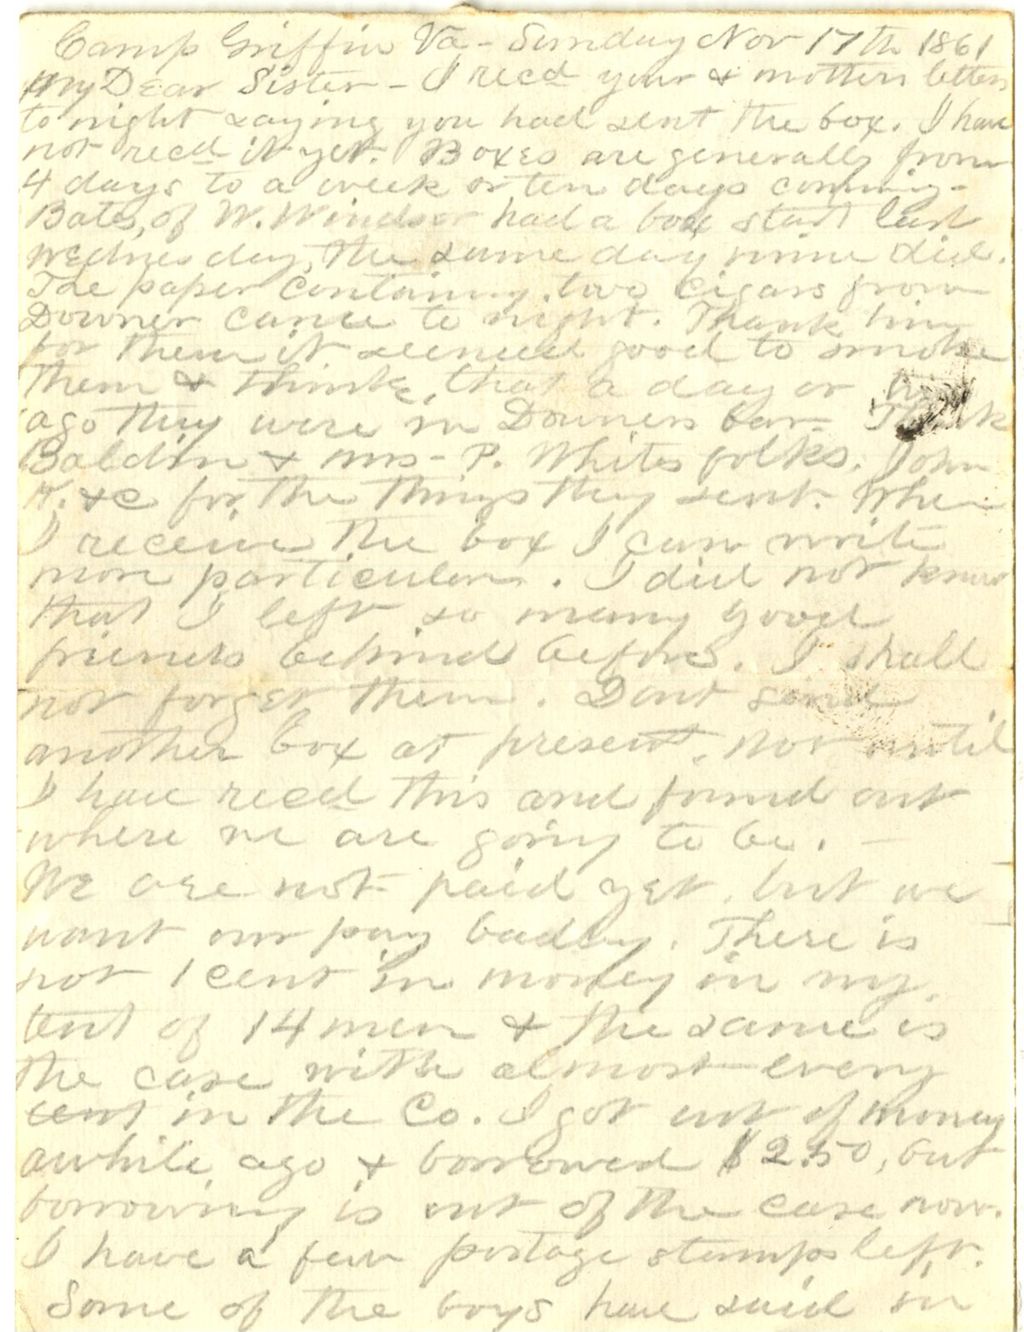 Camp Griffin Va - Sunday Nov 17th 1861
My Dear Sister - I recd your & mothers letters
to night saying you had sent the box. I have
not recd it yet. Boxes are generally from
4 days to a week or ten days coming -
Bates, of W. Windsor had a box start last
Wednesday, the same day mine did.
The paper containing two cigars from
Downer came to night. Thank him
for them it seemed good to smoke
them & think, that a day or
ago they were in Downers bar - Thank
Baldin & Mrs - P. Whites folks, John
&c for the things they sent. When
I receive the box I can write
more particulars. I did not know
that I left so many good
friends behind before. I shall
not forget them. Dont send
another box at present, not until
I have recd this and found out
where we are going to be. -
We are not paid yet, but we
want our pay badly. There is
not 1 cent in money in my
tent of 14 men & the same is
the case with almost every
tent in the Co. I got out of money
awhile ago & borrowed $2.50, but
borrowing is out of the case now.
I have a few postage stamps left.
Some of the boys have said in